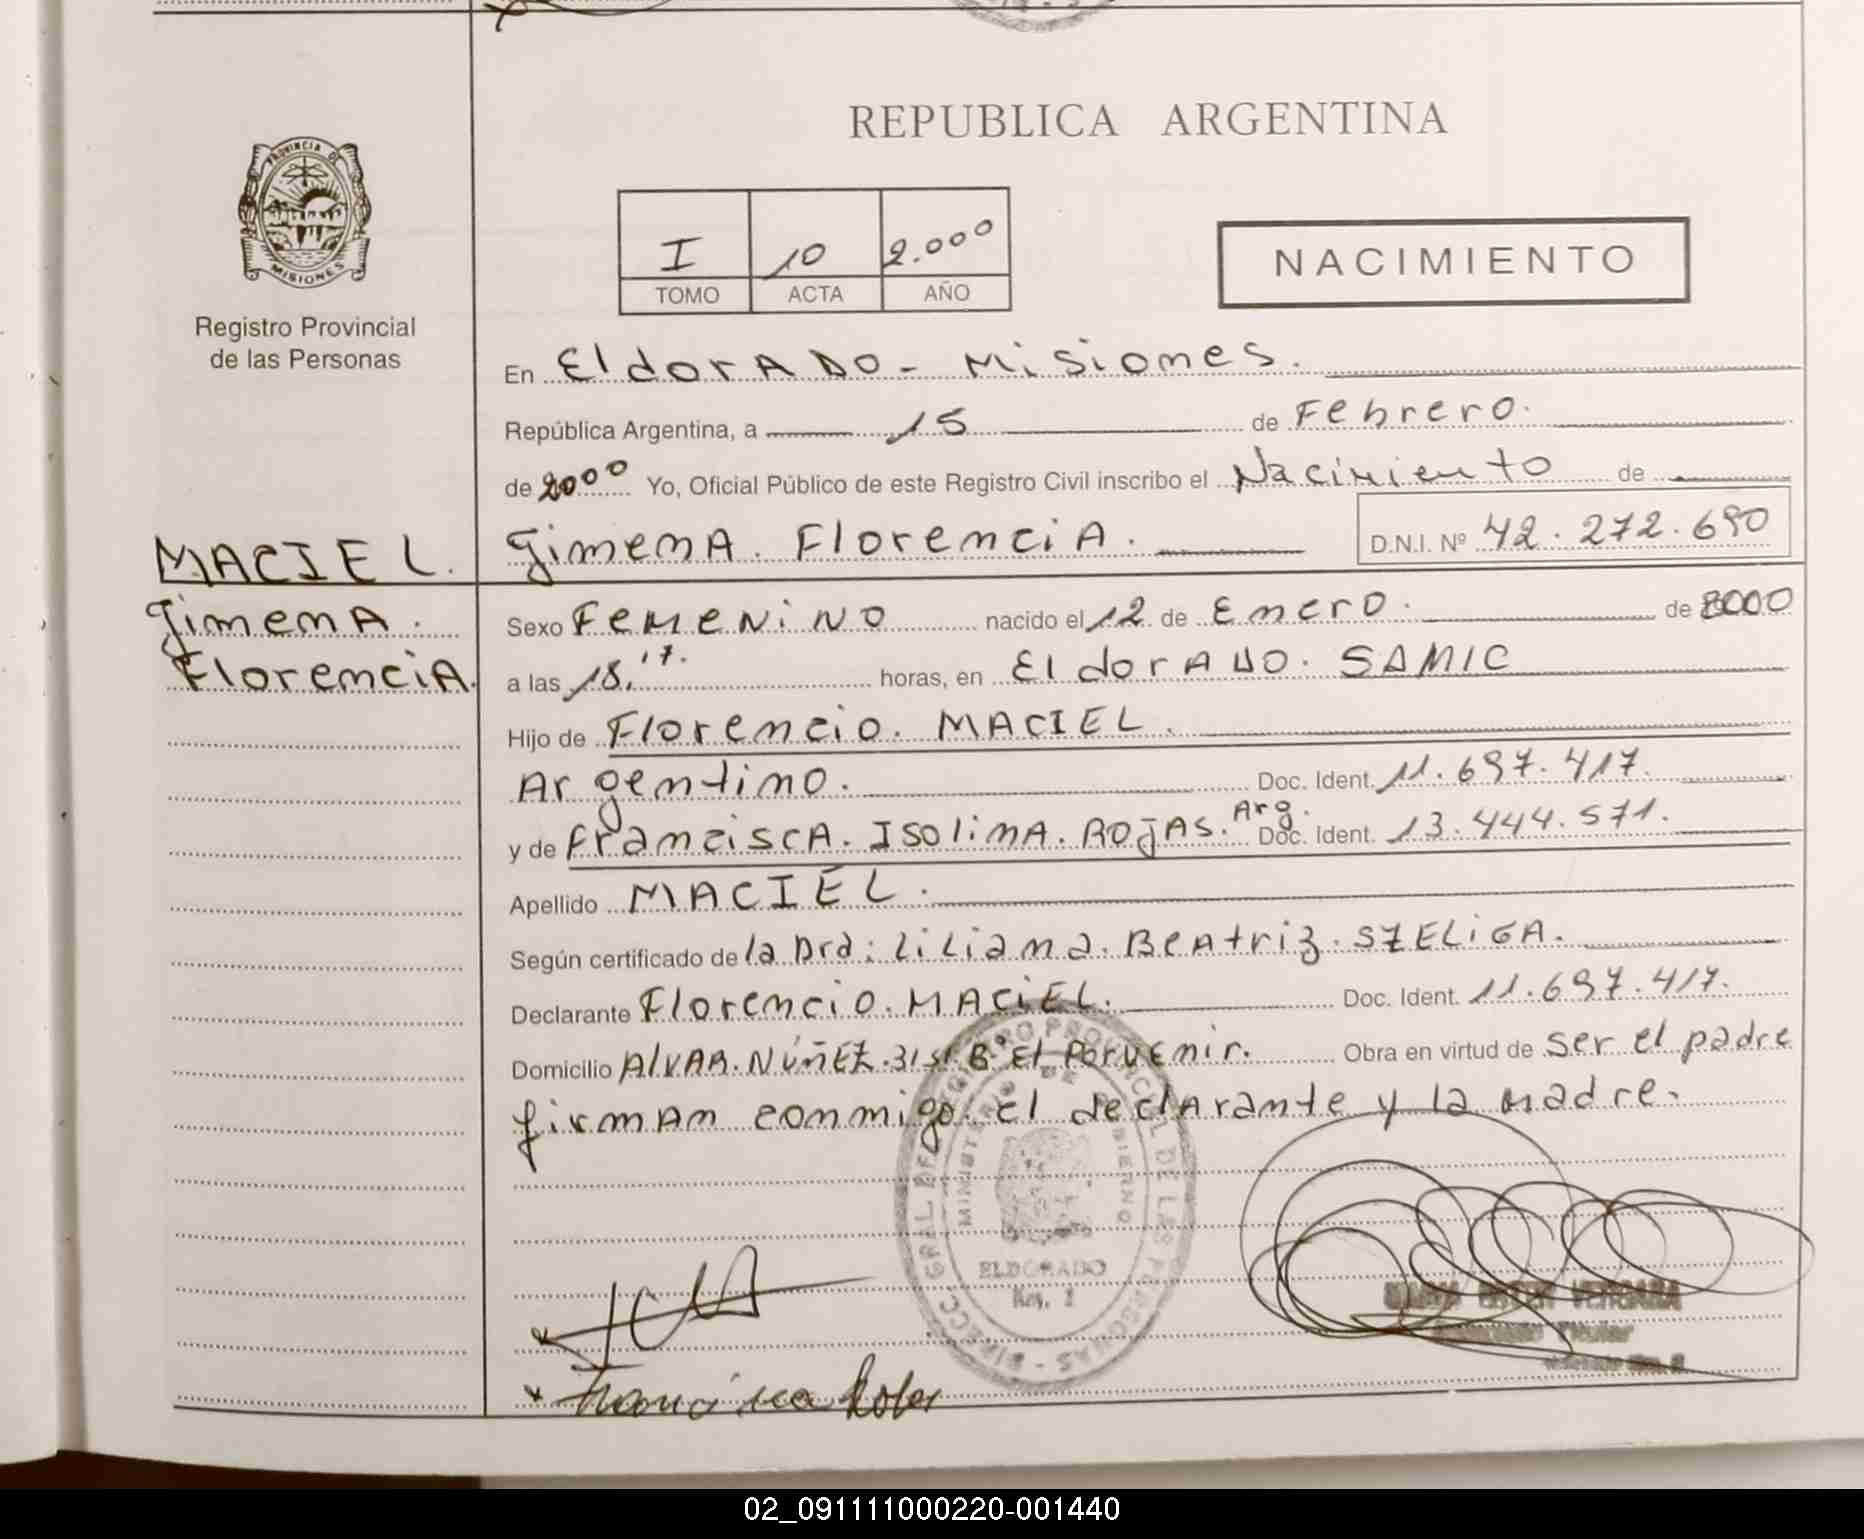 REPUBLICA ARGENTINA
PROVINCIA DE
MISIONES
Registro Provincial
de las Personas
I 10 2.000
TOMO ACTA AÑO
NACIMIENTO
En EldorADO - Misiones.
República Argentina, a 15 de Febrero.
de 2000 Yo, Oficial Público de este Registro Civil inscribo el Nacimiento de
MACIEL. GimenA. FlorenciA. D.N.I. Nº 42.272.690
GimenA. Sexo FeMeNiNO nacido el 12 de Enero. de 2000
FlorenciA. a las 18,17. horas, en EldorADO. SAMIC
Hijo de Florencio. MACIEL.
Argentino. Doc. Ident. 11.697.417.
y de FranciscA. IsolinA. ROjAS. Arg. Doc. Ident. 13.444.571.
Apellido MACIEL.
Según certificado de la Dra: LiLiana. BeAtriz. SZELiGA.
Declarante Florencio. MACiEL. Doc. Ident. 11.697.417.
Domicilio AlvAR. NÚÑEZ. 31 st. B° El Porvenir. Obra en virtud de ser el padre
firmAn conmigo. El declArante y la madre.
DIRECC. GRAL. DEL REGISTRO PROVINCIAL DE LAS PERSONAS
MINISTERIO DE GOBIERNO
ELDORADO
Km. 2
VERGARA
Titular
Francisca Rojas
02_091111000220-001440